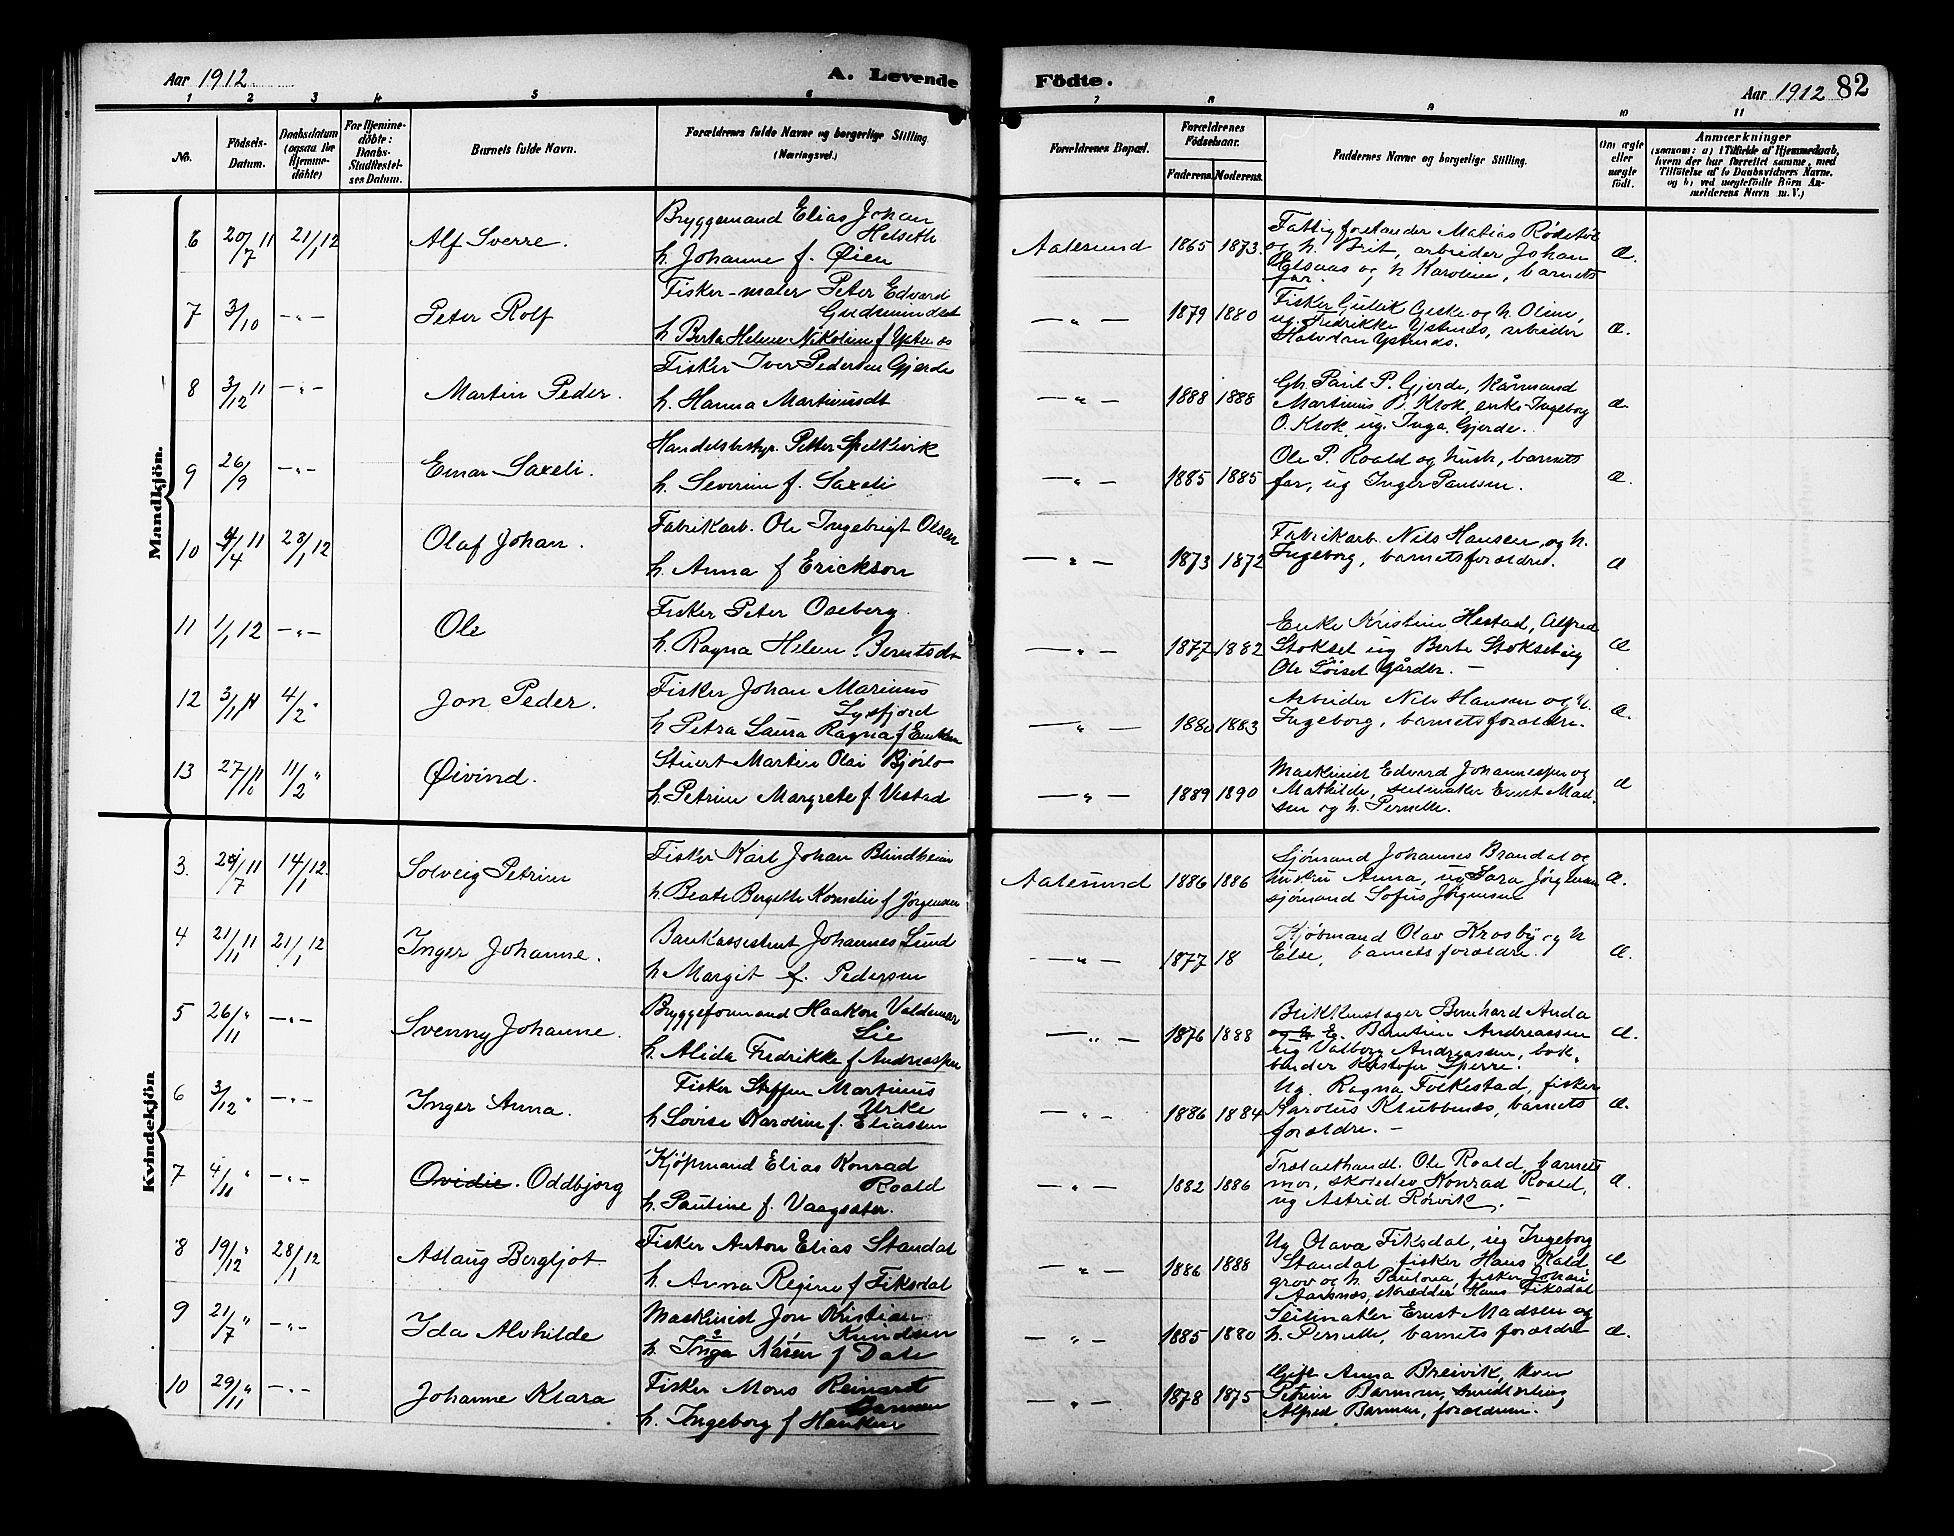 Aar 1912
A. Levende
Födte.
Aar 1912 82
1 2 3 4 5 6 7 8 9 10 11
No.
Födsels-
Datum.
Daabsdatum
(ogsaa for
Hjemme-
döbte)
For Hjemme-
döbte:
Daabs-
Stadfæstel-
ses Datum.
Barnets fulde Navn.
Forældrenes fulde Navne og borgerlige Stilling
(Næringsvei.)
Forældrenes Bopæl.
Forældrenes
Födselsaar.
Faderens. Moderens.
Faddernes Navne og borgerlige Stilling.
Om ægte
eller
uægte
födt.
Anmærkninger
(saasom: a) i Tilfælde af Hjemmedaab,
hvem der har forrettet samme, med
Tilföielse af to Daabsvidners Navne.
og b) ved uægtefödte Börn An-
melderens Navn m. V.)
Mandkjön.
6 20/7 11 21/1 12 Alf Sverre.
Bryggemand Elias Johan
Helseth
h. Johanne f. Øien
Aalesund 1865 1873.
Fattigforstander Matias Rødset
og h. Brit, arbeider Johan
og h Karoline, barnets
far.
Æ.
7 3/10 -"- Peter Rolf
Fisker-maler Peter Edvard
Gudmundset
h Berta Helene Nikoline f Ystenes
-"- 1879 1880
Fisker Giske og h Oline,
ug. Fredrikke Ystenes, arbeider
Halvdan Ystenes.
Æ.
8 3/12 11 -"- Martin Peder.
Fisker Iver Pedersen Gjerde
h. Hanna Martinusdt
-"- 1888 1888
Gh. Paul P. Gjerde, kårmand
Martinus B. Krok, enke Ingeborg
O. Krok, ug. Inga Gjerde.
Æ.
9 26/9 -"- Einar Saxeli.
Handelsbestyr. Petter Spelkevik
h. Severine f. Saxeli
-"- 1885 1885
Ole P. Roald og hustr, barnets
far, ug Inger Paulsen.
Æ.
10 4/4 11 28/1 12 Olaf Johan.
Fabrikarb. Ole Ingebrigt Olsen
h. Anna f Erickson
-"- 1873 1872
Fabrikarb. Nils Hansen, og h.
Ingeborg, barnets forældre.
Æ
11 1/1 12 -"- Ole
Fisker Peter Oseberg.
h. Ragna Helene Berntsdt
-"- 1877 1882
Enke Kristine Hestad, Alfred
Stokset ug Berte Stokset ug
Ole Gårder. -
Æ
12 3/11 11 4/2 " Jon Peder.
Fisker Johan Marinus
Sysfjord
h Petra Laura Ragna f
-"- 1880 1883
Arbeider Nils Hansen og h.
Ingeborg, barnets forældre.
Æ.
13 27/10 11 11/2 " Øivind.
Stuert Martin Olai Bjørlo
h. Petrine Margrete f Vestad
-"- 1889 1890
Maskinist Edvard Johannessen og
Mathilde, seilmaker Ernst Mad-
sen og h. Pernelle.
Æ
Kvindekjön
3. 29/7 11 14/1 12. Solveig Petrine
Fisker Karl Johan Blindheim
h. Beate Bergitte Kornelie f Jørgensen
Aalesund 1886 1886
Sjømand Johannes Brandal og
hustru Anna, ug Sara Jørgensen
sjømand Sofus Jørgensen
Æ.
4 21/11 11 21/1 12 Inger Johanne.
Bankassistent Johannes Lund
h Margit f. Pedersen
-"- 1877 18
Kjøbmand Olav Krosby og h
Else, barnets forældre.
Æ.
5 26/11 " -"- Svenny Johanne.
Bryggeformand Haakon Valdemar
Lie
h. Alida Fredrikke f Andreassen
-"- 1876 1888
Blikkenslager Bernhard Anda
og h Eg. Berntine Andreassen
ug Valborg Andreassen, bok-
binder Kristofer Sperre.
Æ.
6 3/12 " -"- Inger Anna.
Fisker Steffen Martinus
Urke
h Lovise Karoline f. Eliassen
-"- 1886 1884
Ug. Ragna Folkestad, fisker
Karolus Klubbenes, barnets
forældre. -
Æ.
7 4/10 " -"- Ovidie. Oddbjørg
Kjøpmand Elias Konrad
Roald
h. Pauline f. Vaagsæter.
-"- 1882 1886
Trælasthandl. Ole Roald, barnets
mor, skoleelev Konrad Roald,
ug Astrid Rørvik. -
Æ.
8 19/12 " 28/1 12 Aslaug Bergljot
Fisker Anton Elias Standal
h. Anna Regine f Fiksdal
-"- 1886 1888
Ug Olava Fiksdal, ug Ingeborg
Standal, fisker Hans Kald
grov og h. Paulona, fisker Johan
Aarsnes, skrædder Hans Fiksdal
Æ
9 21/7 " -"- Ida Alvhilde
Maskinist Jon Kristian
Knudsen
h. Inga Nåren f Dale
-"- 1885 1880
Seilmaker Ernst Madsen og
h. Pernelle, barnets forældre
Æ.
10 29/11 " -"- Johanne Klara
Fisker Mons Reinardt
Barmen
h. Ingeborg f Hanken
-"- 1878 1875
Gift Anna Breivik,
Petrine Barmen, smedlærling
Alfred Barmen, forældrene.